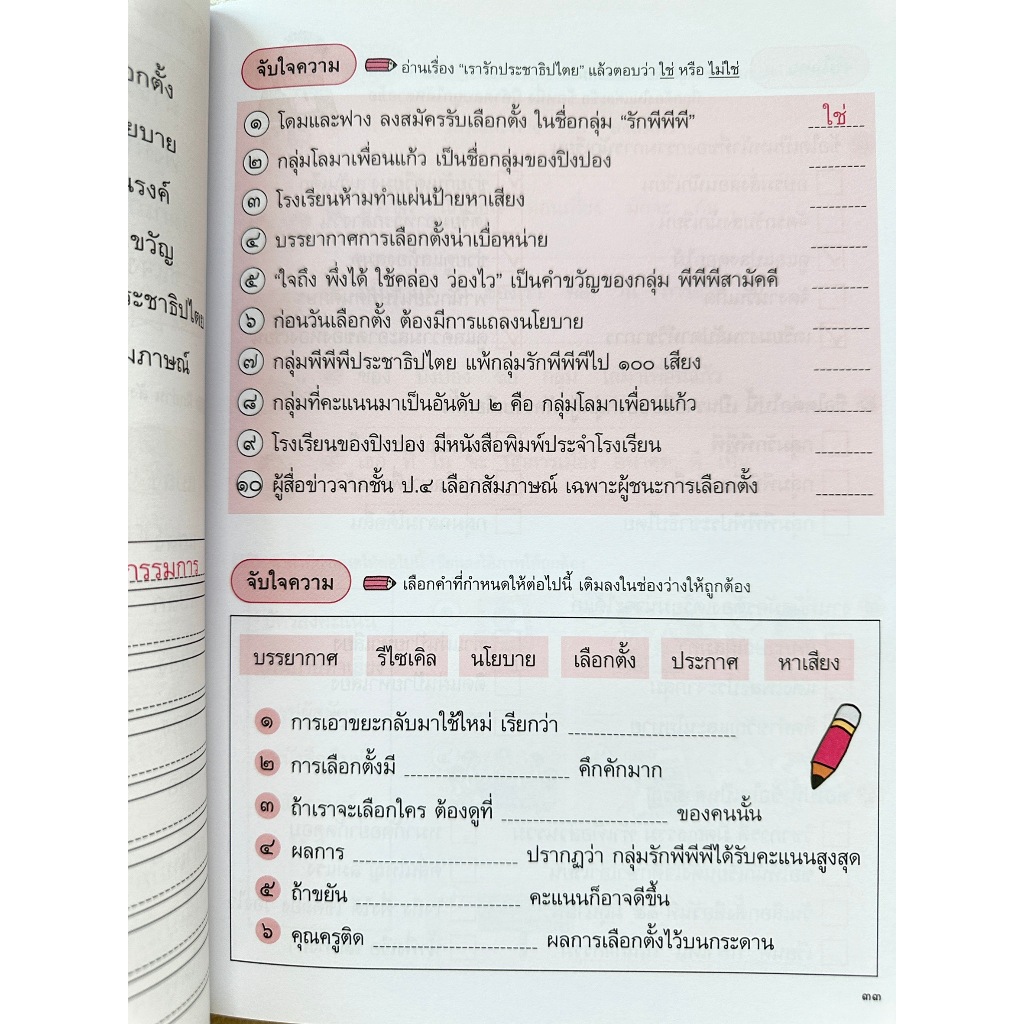 อกตั้ง
ยบาย
ณรงค์
ขวัญ
ระชาธิปไตย
มภาษณ์
กรรมการ
จับใจความ
อ่านเรื่อง “เรารักประชาธิปไตย” แล้วตอบว่า ใช่ หรือ ไม่ใช่
๑ โดมและฟาง ลงสมัครรับเลือกตั้ง ในชื่อกลุ่ม “รักพีพีพี” ใช่
๒ กลุ่มโลมาเพื่อนแก้ว เป็นชื่อกลุ่มของปิงปอง
๓ โรงเรียนห้ามทำแผ่นป้ายหาเสียง
๔ บรรยากาศการเลือกตั้งน่าเบื่อหน่าย
๕ “ใจถึง พึ่งได้ ใช้คล่อง ว่องไว” เป็นคำขวัญของกลุ่ม พีพีพีสามัคคี
๖ ก่อนวันเลือกตั้ง ต้องมีการแถลงนโยบาย
๗ กลุ่มพีพีพีประชาธิปไตย แพ้กลุ่มรักพีพีพีไป ๑๐๐ เสียง
๘ กลุ่มที่คะแนนมาเป็นอันดับ ๒ คือ กลุ่มโลมาเพื่อนแก้ว
๙ โรงเรียนของปิงปอง มีหนังสือพิมพ์ประจำโรงเรียน
๑๐ ผู้สื่อข่าวจากชั้น ป.๔ เลือกสัมภาษณ์ เฉพาะผู้ชนะการเลือกตั้ง
จับใจความ
เลือกคำที่กำหนดให้ต่อไปนี้ เติมลงในช่องว่างให้ถูกต้อง
บรรยากาศ รีไซเคิล นโยบาย เลือกตั้ง ประกาศ หาเสียง
๑ การเอาขยะกลับมาใช้ใหม่ เรียกว่า
๒ การเลือกตั้งมี คึกคักมาก
๓ ถ้าเราจะเลือกใคร ต้องดูที่ ของคนนั้น
๔ ผลการ ปรากฏว่า กลุ่มรักพีพีพีได้รับคะแนนสูงสุด
๕ ถ้าขยัน คะแนนก็อาจดีขึ้น
๖ คุณครูติด ผลการเลือกตั้งไว้บนกระดาน
๓๓